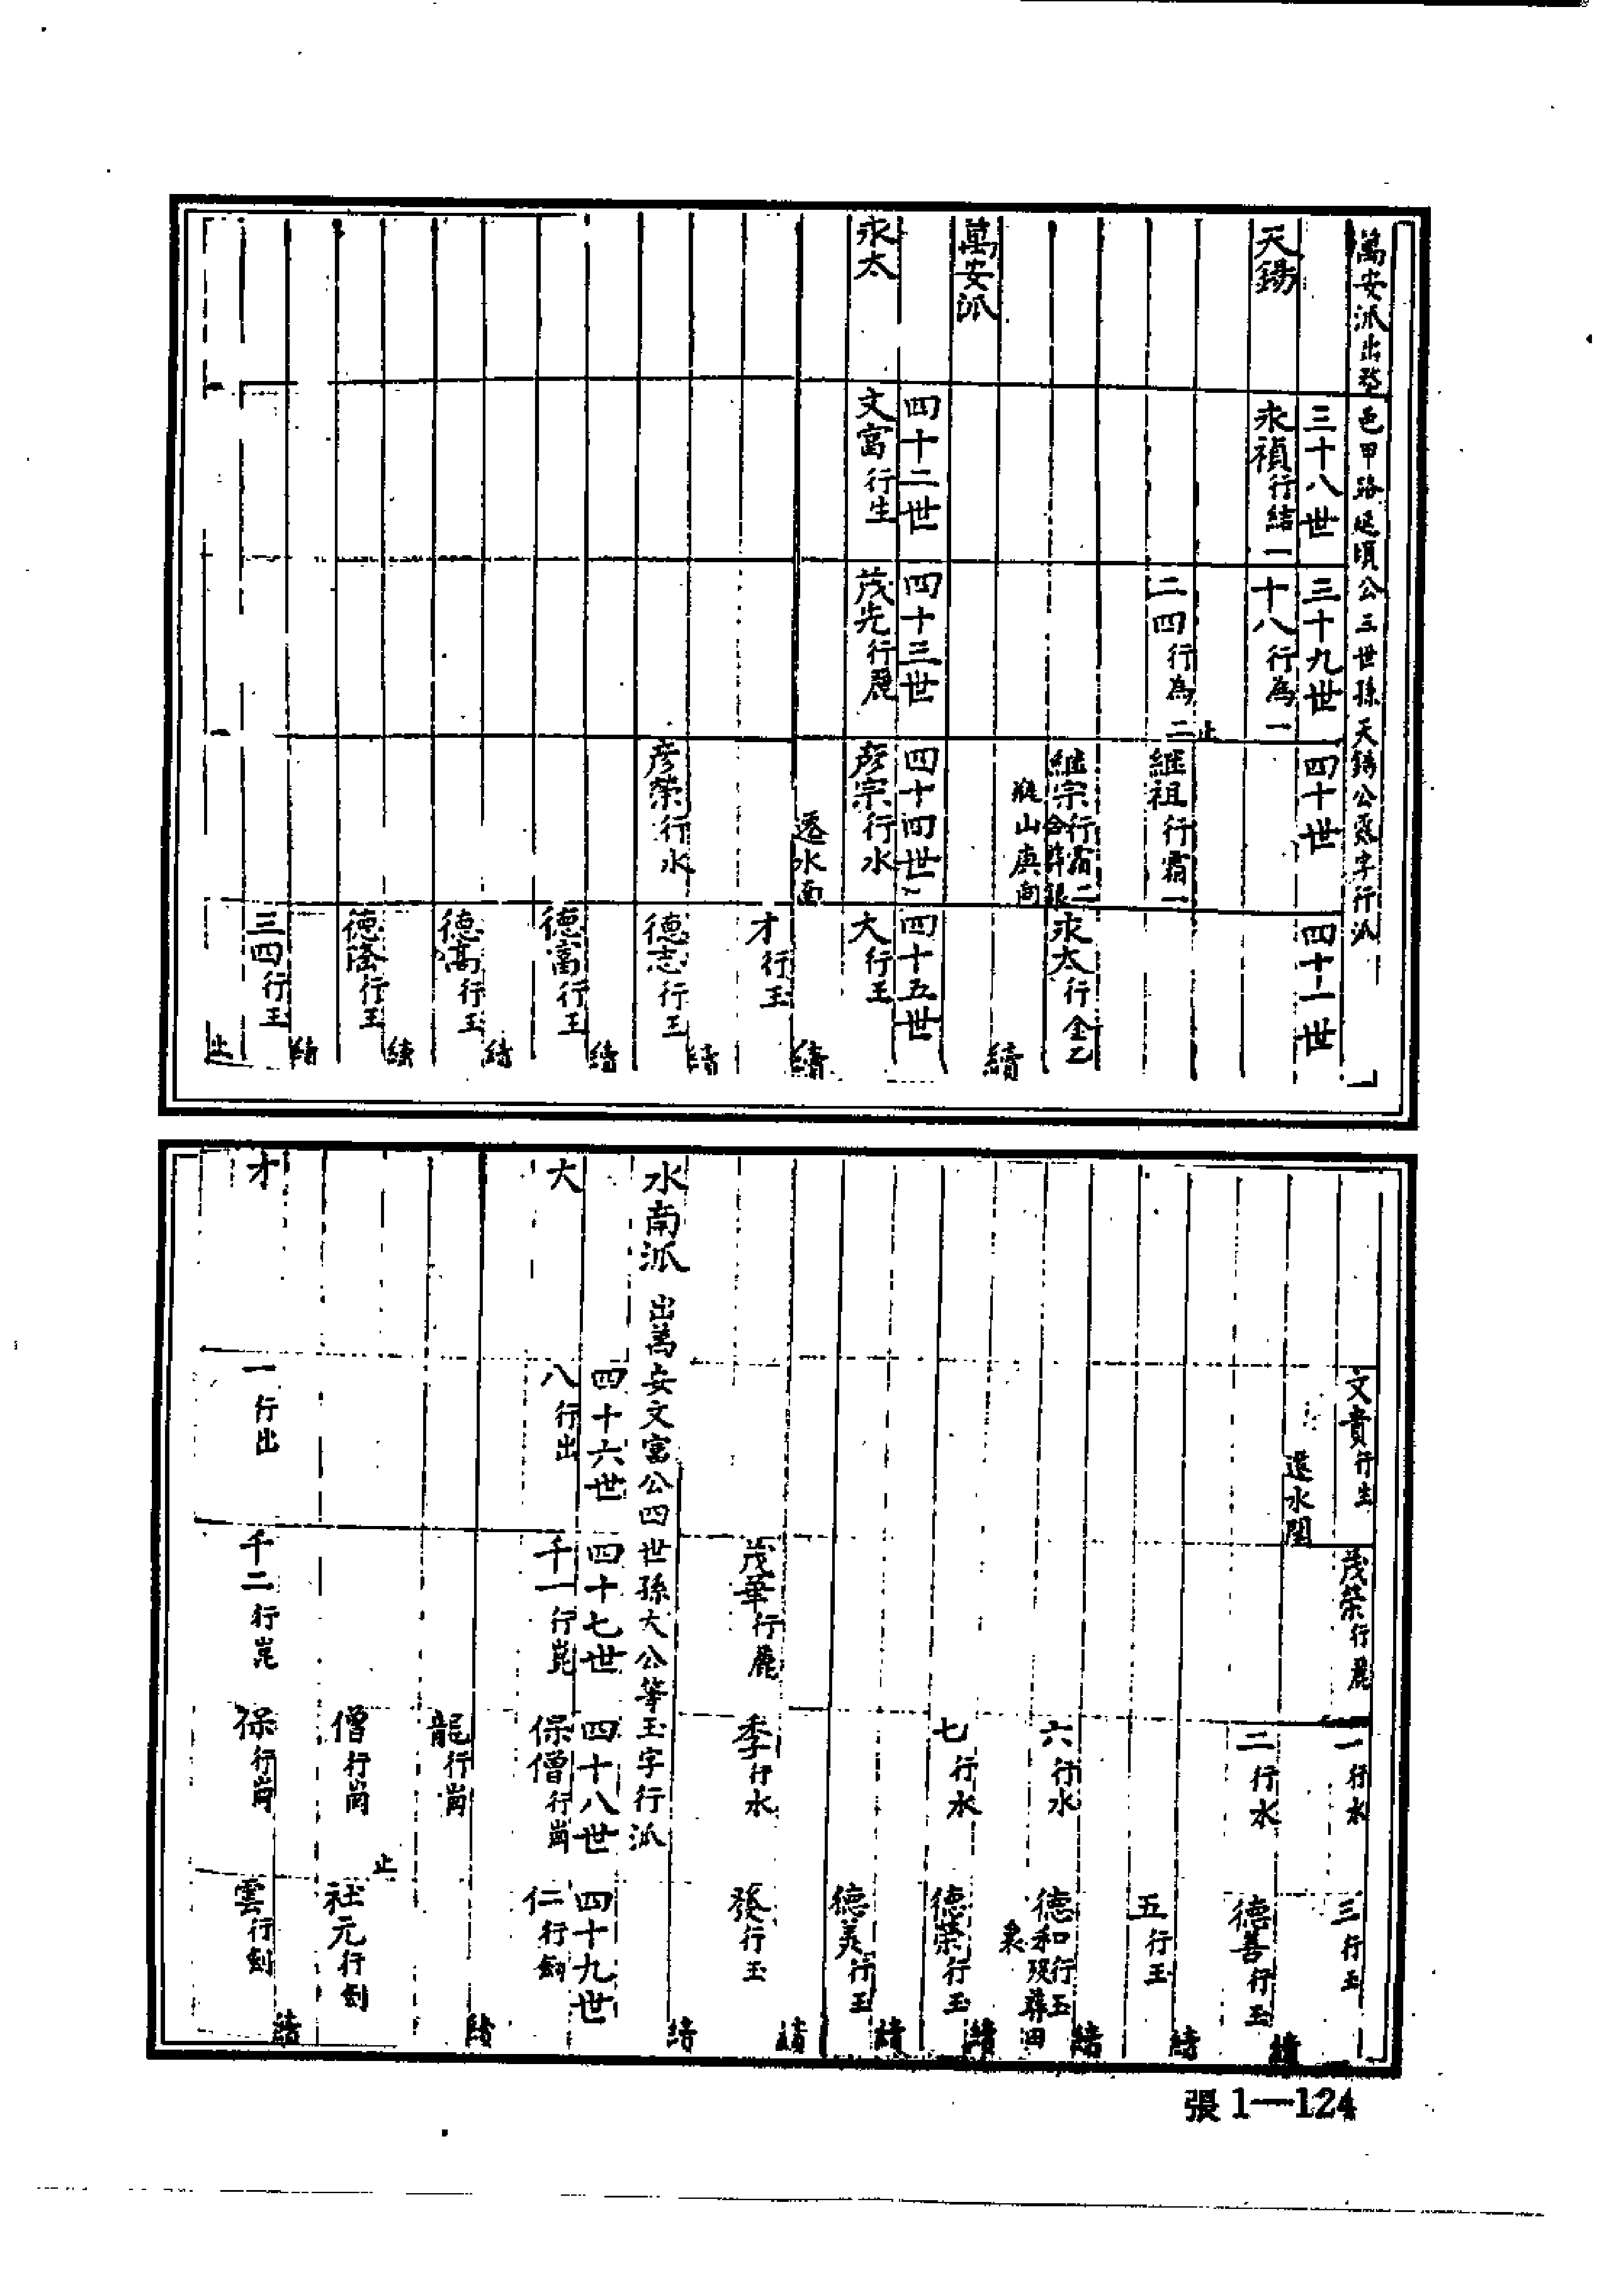 萬安派出婺邑甲路延頃公三世孫天錫公永字行派
三十八世 三十九世 四十世 四十一世
天錫 永禎行結一 十八行為一
二四行為二 止 繼祖行霜一
繼宗行霜二 永太行金乙
續
萬安派
四十二世 四十三世 四十四世 四十五世
永太 文富行生 茂先行麗 彦宗行水 大行玉
遷水南 續
才行玉
續
彦榮行水 德志行玉
續
德富行玉
續
德高行玉
續
德隆行玉
續
三四行玉
止
文貴行生 茂榮行麗 一行水 三行玉
遷水閏
續
二行水 德善行玉
續
五行玉
續
六行水 德和行玉
續
七行水 德榮行玉
續
德美行玉
續
茂華行麗 季行水 發行玉
續
水南派 出萬安文富公四世孫大公等玉字行派
四十六世 四十七世 四十八世 四十九世
大 八行出 千一行崑 保僧行崗 仁行劍
續
龍行崗
止
僧行崗 社元行劍
續
才 一行出 千二行崑 保行崗 雲行劍
張1—124